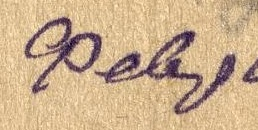 Февр